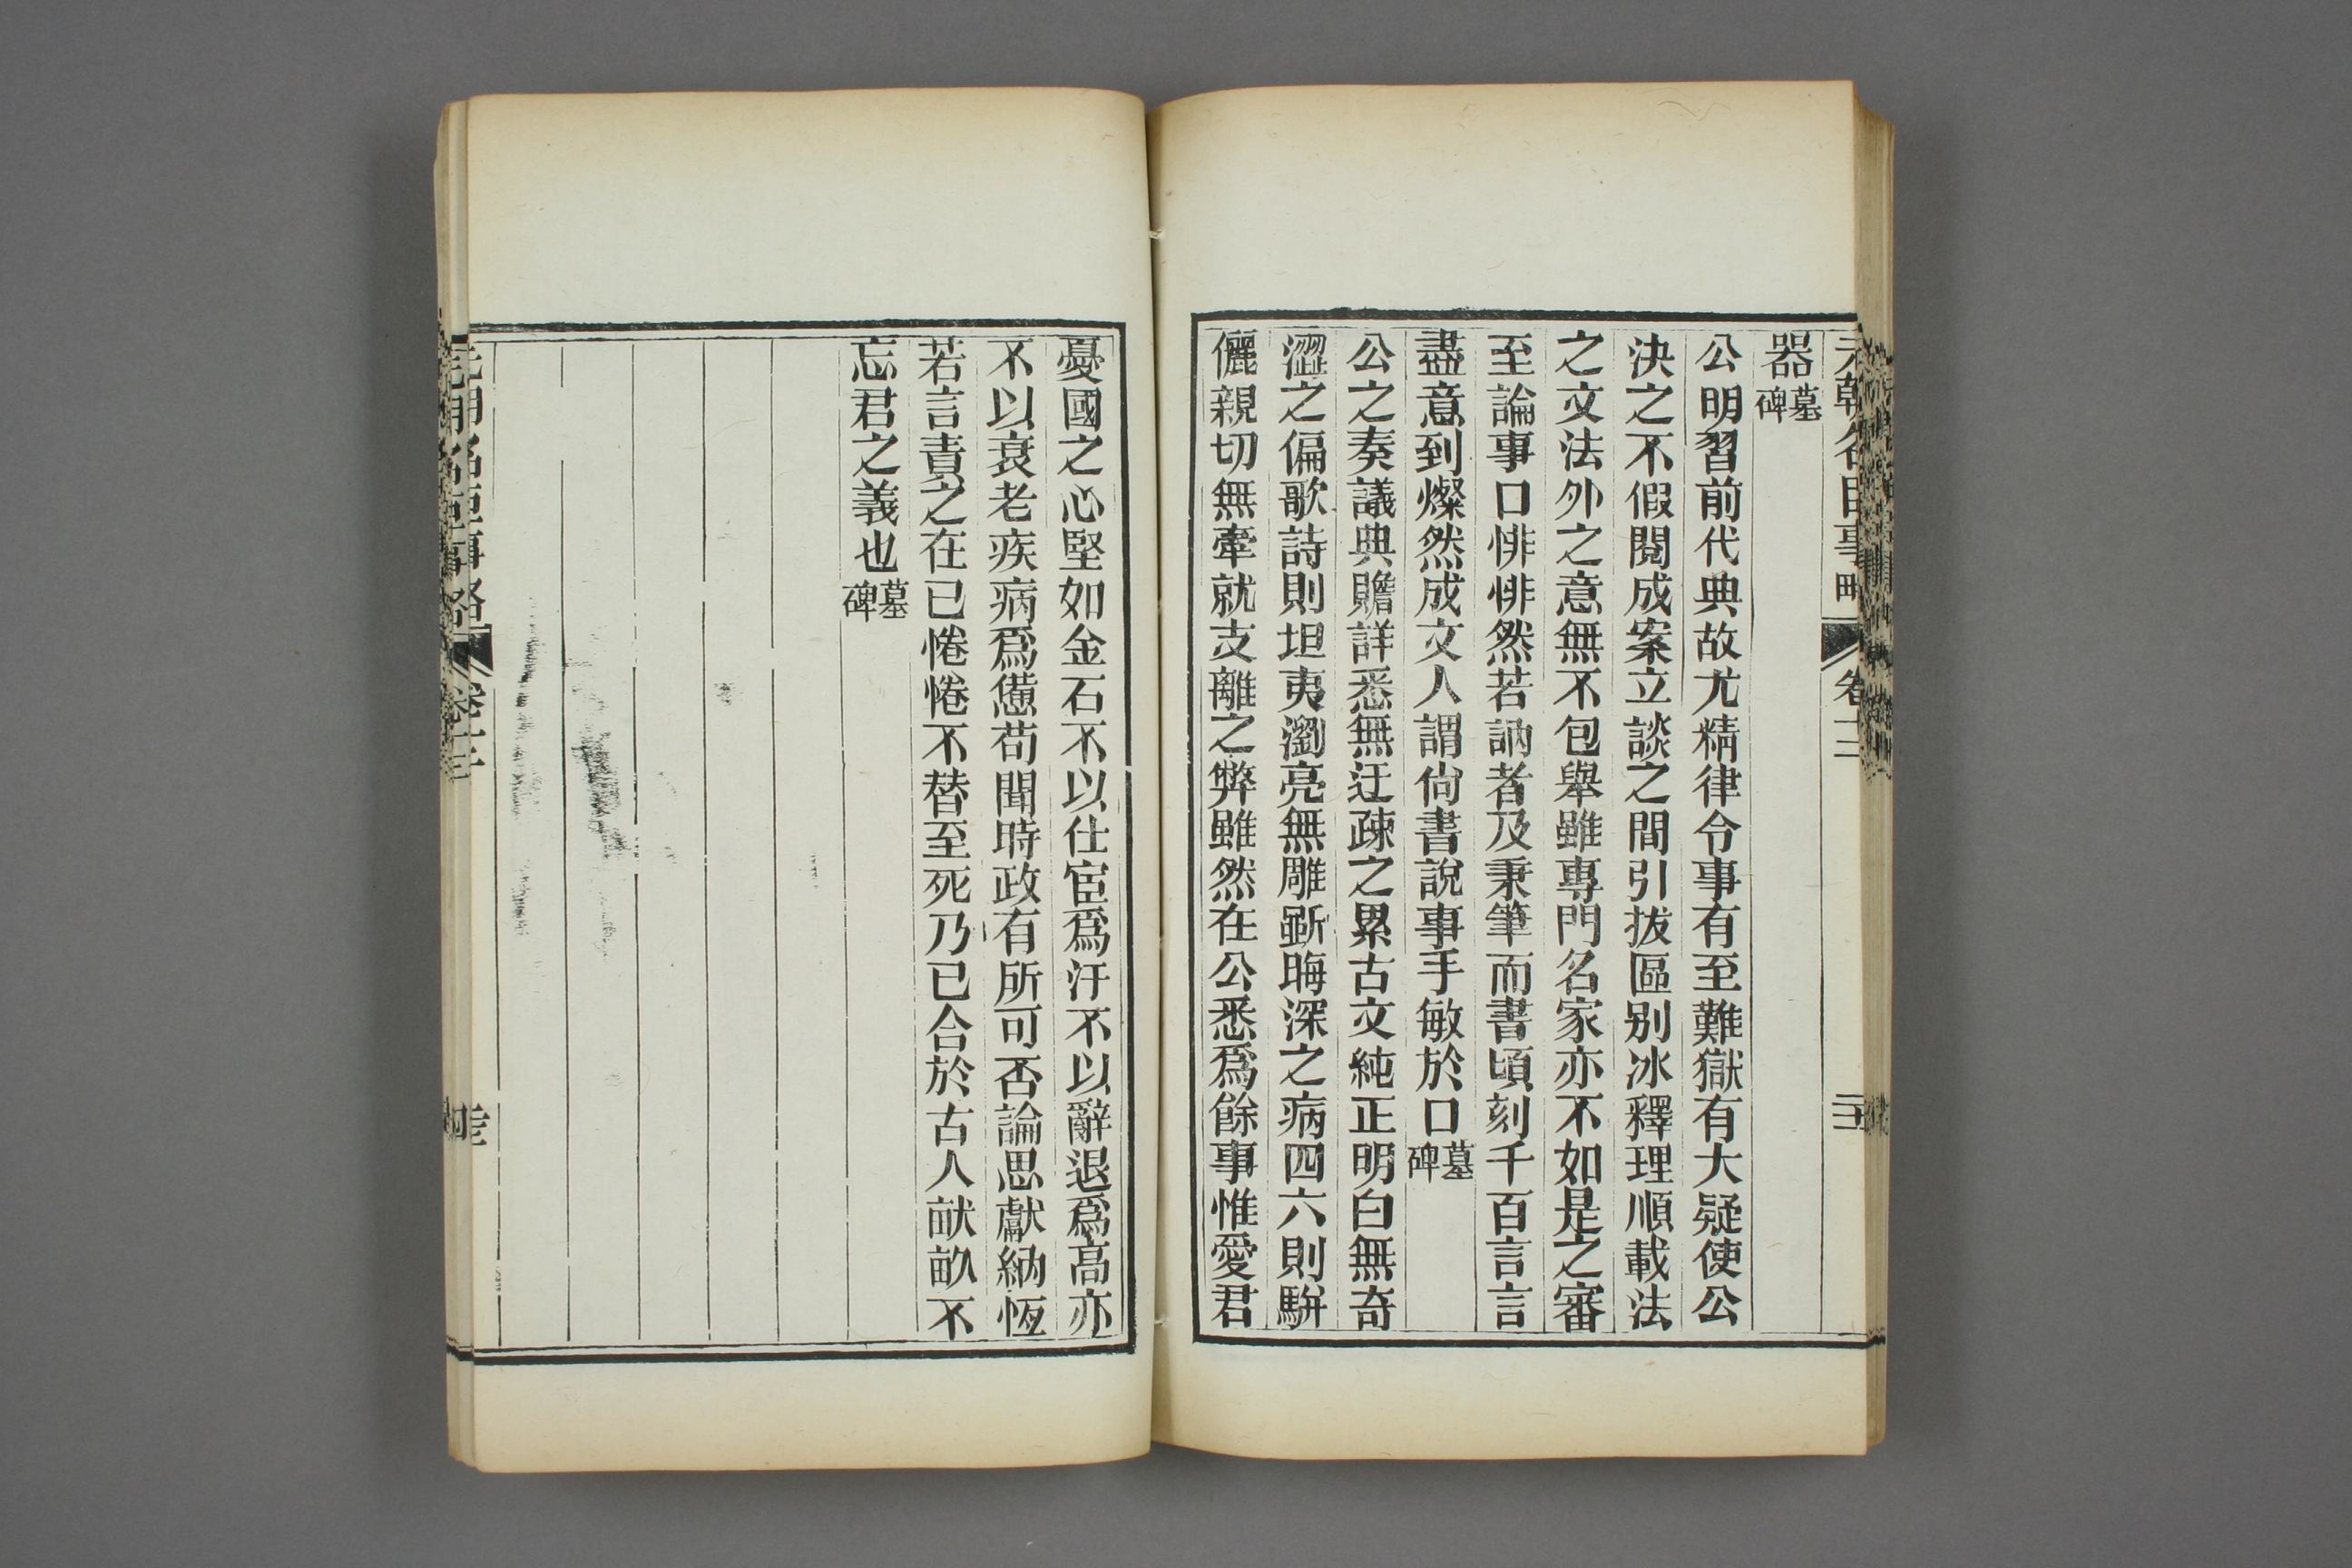 器墓碑
公明習前代典故尤精律令事有至難獄有大疑使公
決之不假閱成案立談之間引拔區別冰釋理順載法
之文法外之意無不包舉雖專門名家亦不如是之審
至論事口悱悱然若訥者及秉筆而書頃刻千百言言
盡意到燦然成文人謂尙書說事手敏於口墓碑
公之奏議典贍詳悉無迂疎之累古文純正明白無奇
澀之偏歌詩則坦夷瀏亮無雕斲晦深之病四六則騈
儷親切無牽就支離之弊雖然在公悉爲餘事惟愛君
憂國之心堅如金石不以仕宦爲汙不以辭退爲高亦
不以衰老疾病爲憊苟聞時政有所可否論思獻納恆
若言責之在已惓惓不替至死乃已合於古人畎畝不
忘君之義也墓碑